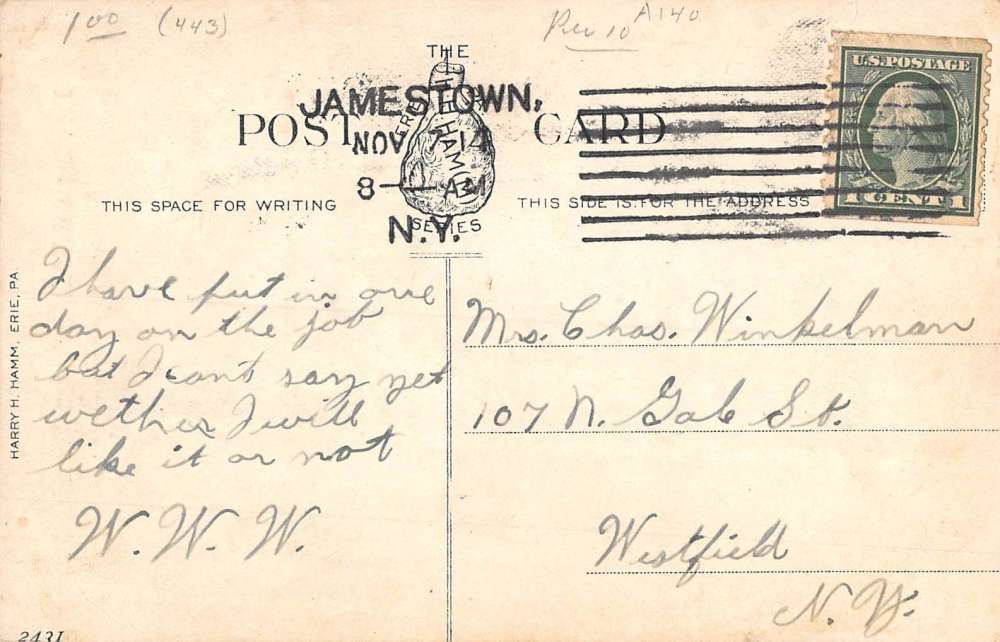 1.00 (443)
A140
THE
JAMESTOWN,
POST CARD
NOV 14
8 AM
N.Y.
HAMM
SERIES
U.S. POSTAGE
1 CENT 1
THIS SPACE FOR WRITING
THIS SIDE IS FOR THE ADDRESS
HARRY H. HAMM, ERIE, PA
I have put in one
day on the job
but I cant say yet
wether I will
like it or not
W. W. W.
Mrs. Chas. Winkelman
107 N. Gale St.
Westfield
N. Y.
2431